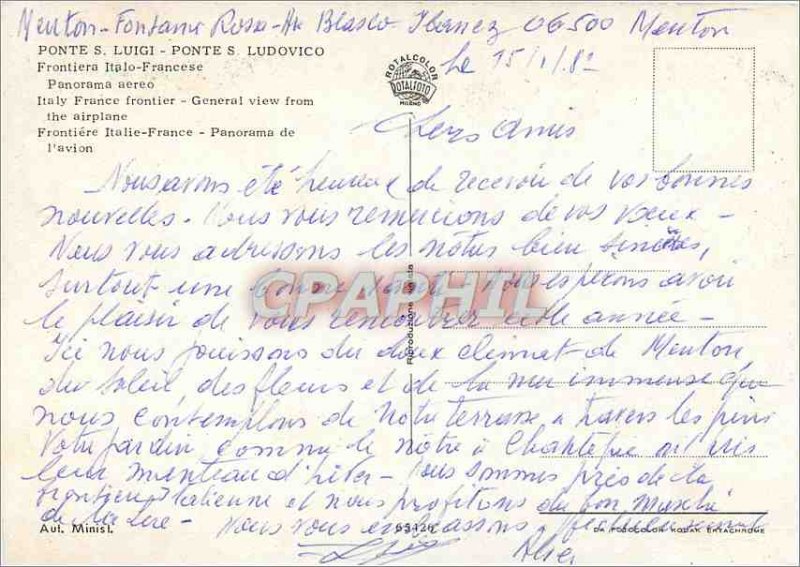 Menton - Fontana Rosa - Av Blasco Ibanez 06500 Menton
PONTE S. LUIGI - PONTE S. LUDOVICO
Frontiera Italo-Francese
Panorama aereo
Italy France frontier - General view from
the airplane
Frontiére Italie-France - Panorama de
l'avion
ROTALCOLOR
ROTALFOTO
MILANO
Le 15/1/82
Chers Amis
Nous avons été heureux de recevoir de vos bonnes
nouvelles - Nous vous remercions de vos voeux -
Nous vous adressons les nôtres bien sincères,
surtout une bonne santé - Nous espérons avoir
le plaisir de vous rencontrer cette année -
Ici nous jouissons du doux climat de Menton
du soleil des fleurs et de la mer immense que
nous contemplons de notre terrasse à travers les pins
Votre jardin comme le nôtre à Chantepie ont mis
leur manteau d'hiver - Nous sommes près de la
frontière italienne et nous profitons du bon marché
de la Lire - Nous vous embrassons
CPARAPHIL
Riproduzione vietata
Aut. Minist.
65426
DA FOTOCOLOR KODAK EKTACHROME